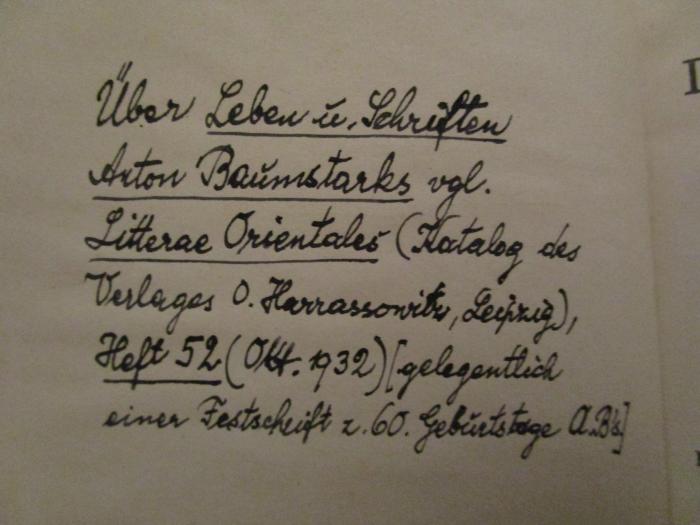 Über Leben u. Schriften
Anton Baumstarks vgl.
Litterae Orientales (Katalog des
Verlages O. Harrassowitz, Leipzig),
Heft 52 (Okt. 1932) [gelegentlich
einer Festschrift z. 60. Geburtstage A.B's]